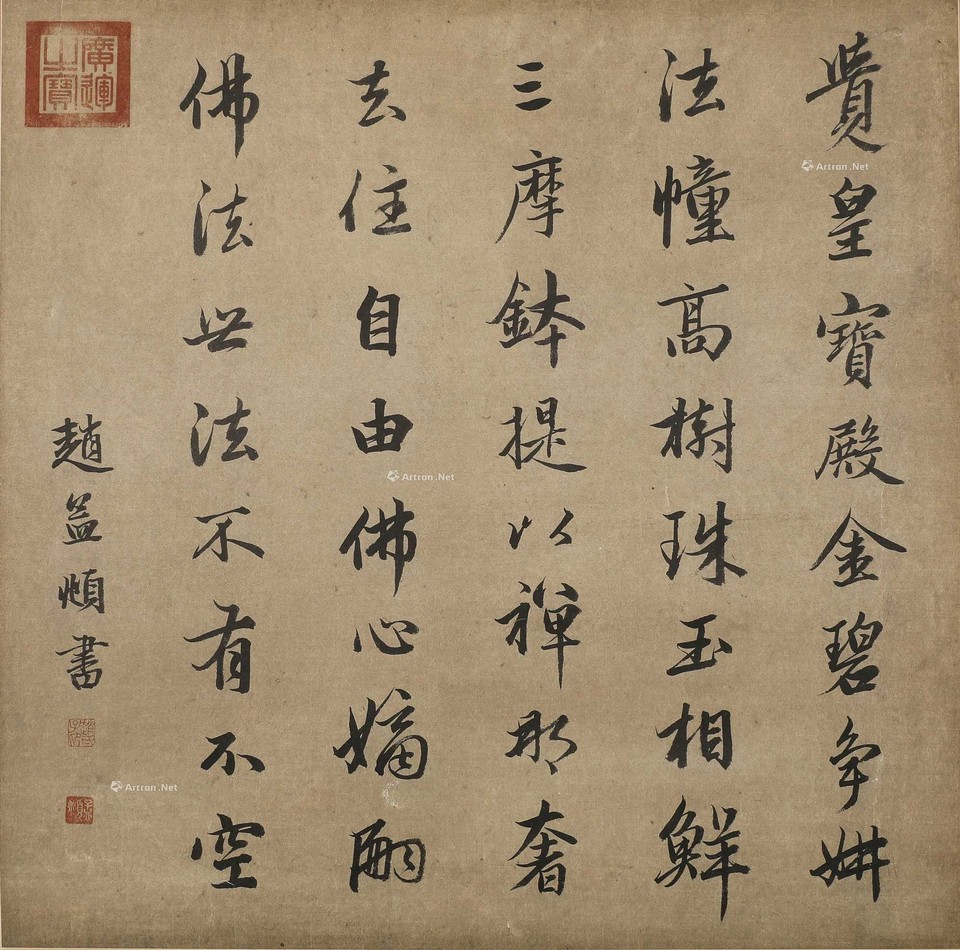 覺皇寶殿金碧争妍
法幢高樹珠玉相鮮
三摩鉢提以禪那奢
去住自由佛心嫡嗣
佛法世法不有不空
趙孟頫書
廣運之寶
Artron.Net
Artron.Net
Artron.Net